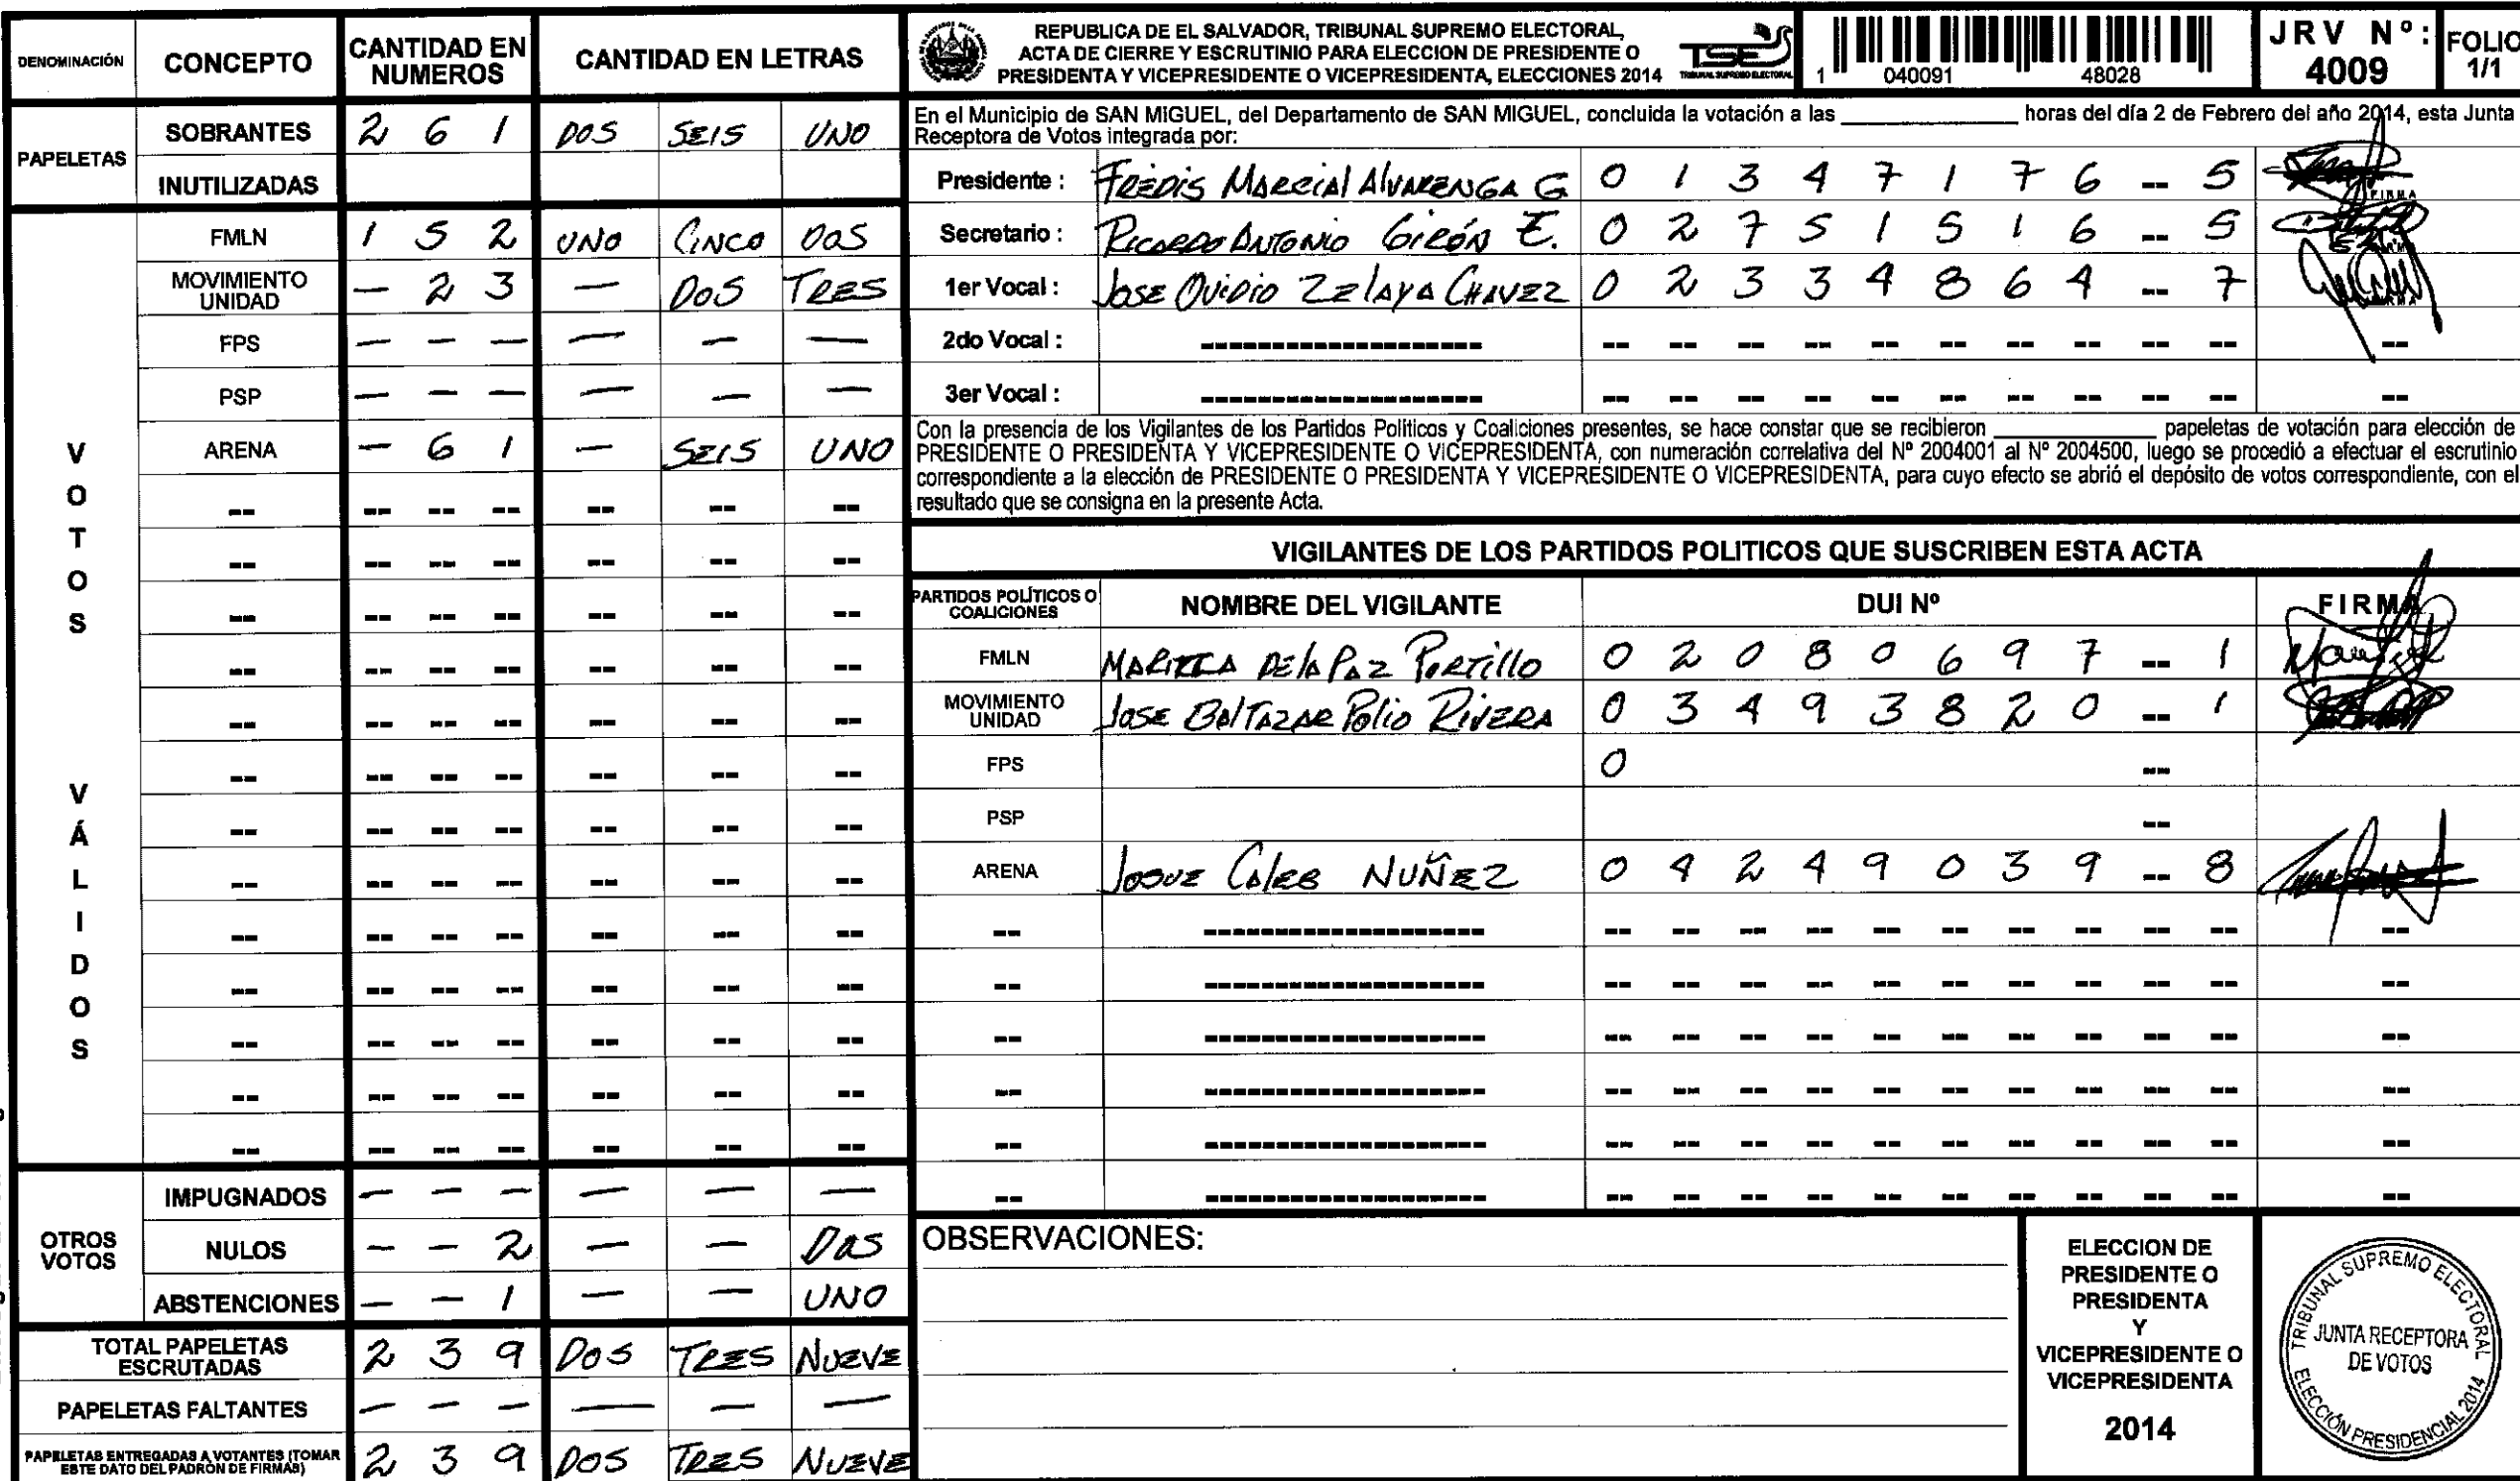 DENOMINACIÓN CONCEPTO CANTIDAD EN NUMEROS CANTIDAD EN LETRAS
PAPELETAS
SOBRANTES 2 6 1 DOS SEIS UNO
INUTILIZADAS
VOTOS VÁLIDOS
FMLN 1 5 2 UNO CINCO DOS
MOVIMIENTO UNIDAD — 2 3 — DOS TRES
FPS — — — — — —
PSP — — — — — —
ARENA — 6 1 — SEIS UNO
-- -- -- -- -- -- --
-- -- -- -- -- -- --
-- -- -- -- -- -- --
-- -- -- -- -- -- --
-- -- -- -- -- -- --
-- -- -- -- -- -- --
-- -- -- -- -- -- --
-- -- -- -- -- -- --
-- -- -- -- -- -- --
-- -- -- -- -- -- --
-- -- -- -- -- -- --
-- -- -- -- -- -- --
-- -- -- -- -- -- --
OTROS VOTOS
IMPUGNADOS — — — — — —
NULOS — — 2 — — DOS
ABSTENCIONES — — 1 — — UNO
TOTAL PAPELETAS ESCRUTADAS 2 3 9 DOS TRES NUEVE
PAPELETAS FALTANTES — — — — — —
PAPELETAS ENTREGADAS A VOTANTES (TOMAR ESTE DATO DEL PADRÓN DE FIRMAS) 2 3 9 DOS TRES NUEVE
REPUBLICA DE EL SALVADOR, TRIBUNAL SUPREMO ELECTORAL,
ACTA DE CIERRE Y ESCRUTINIO PARA ELECCION DE PRESIDENTE O
PRESIDENTA Y VICEPRESIDENTE O VICEPRESIDENTA, ELECCIONES 2014
TSE
TRIBUNAL SUPREMO ELECTORAL
1 040091 48028
JRV Nº: 4009
FOLIO 1/1
En el Municipio de SAN MIGUEL, del Departamento de SAN MIGUEL, concluida la votación a las ____________ horas del día 2 de Febrero del año 2014, esta Junta
Receptora de Votos integrada por:
Presidente : FREDIS MARCIAL ALVARENGA G 0 1 3 4 7 1 7 6 -- 5 FIRMA
Secretario : RICARDO ANTONIO GIRÓN E. 0 2 7 5 1 5 1 6 -- 5
1er Vocal : JOSE OVIDIO ZELAYA CHAVEZ 0 2 3 3 4 8 6 4 -- 7
2do Vocal : -------------------- -- -- -- -- -- -- -- -- -- -- --
3er Vocal : -------------------- -- -- -- -- -- -- -- -- -- -- --
Con la presencia de los Vigilantes de los Partidos Politicos y Coaliciones presentes, se hace constar que se recibieron ____________ papeletas de votación para elección de
PRESIDENTE O PRESIDENTA Y VICEPRESIDENTE O VICEPRESIDENTA, con numeración correlativa del Nº 2004001 al Nº 2004500, luego se procedió a efectuar el escrutinio
correspondiente a la elección de PRESIDENTE O PRESIDENTA Y VICEPRESIDENTE O VICEPRESIDENTA, para cuyo efecto se abrió el depósito de votos correspondiente, con el
resultado que se consigna en la presente Acta.
VIGILANTES DE LOS PARTIDOS POLITICOS QUE SUSCRIBEN ESTA ACTA
PARTIDOS POLÍTICOS O COALICIONES NOMBRE DEL VIGILANTE DUI Nº FIRMA
FMLN DE LA PAZ PORTILLO 0 2 0 8 0 6 9 7 -- 1
MOVIMIENTO UNIDAD JOSE BALTAZAR POLIO RIVERA 0 3 4 9 3 8 2 0 -- 1
FPS 0 --
PSP --
ARENA JOSUE CALEB NUÑEZ 0 4 2 4 9 0 3 9 -- 8
-- -------------------- -- -- -- -- -- -- -- -- -- -- --
-- -------------------- -- -- -- -- -- -- -- -- -- -- --
-- -------------------- -- -- -- -- -- -- -- -- -- -- --
-- -------------------- -- -- -- -- -- -- -- -- -- -- --
-- -------------------- -- -- -- -- -- -- -- -- -- -- --
-- -------------------- -- -- -- -- -- -- -- -- -- -- --
OBSERVACIONES:
ELECCION DE
PRESIDENTE O
PRESIDENTA
Y
VICEPRESIDENTE O
VICEPRESIDENTA
2014
TRIBUNAL SUPREMO ELECTORAL
JUNTA RECEPTORA
DE VOTOS
ELECCIÓN PRESIDENCIAL 2014